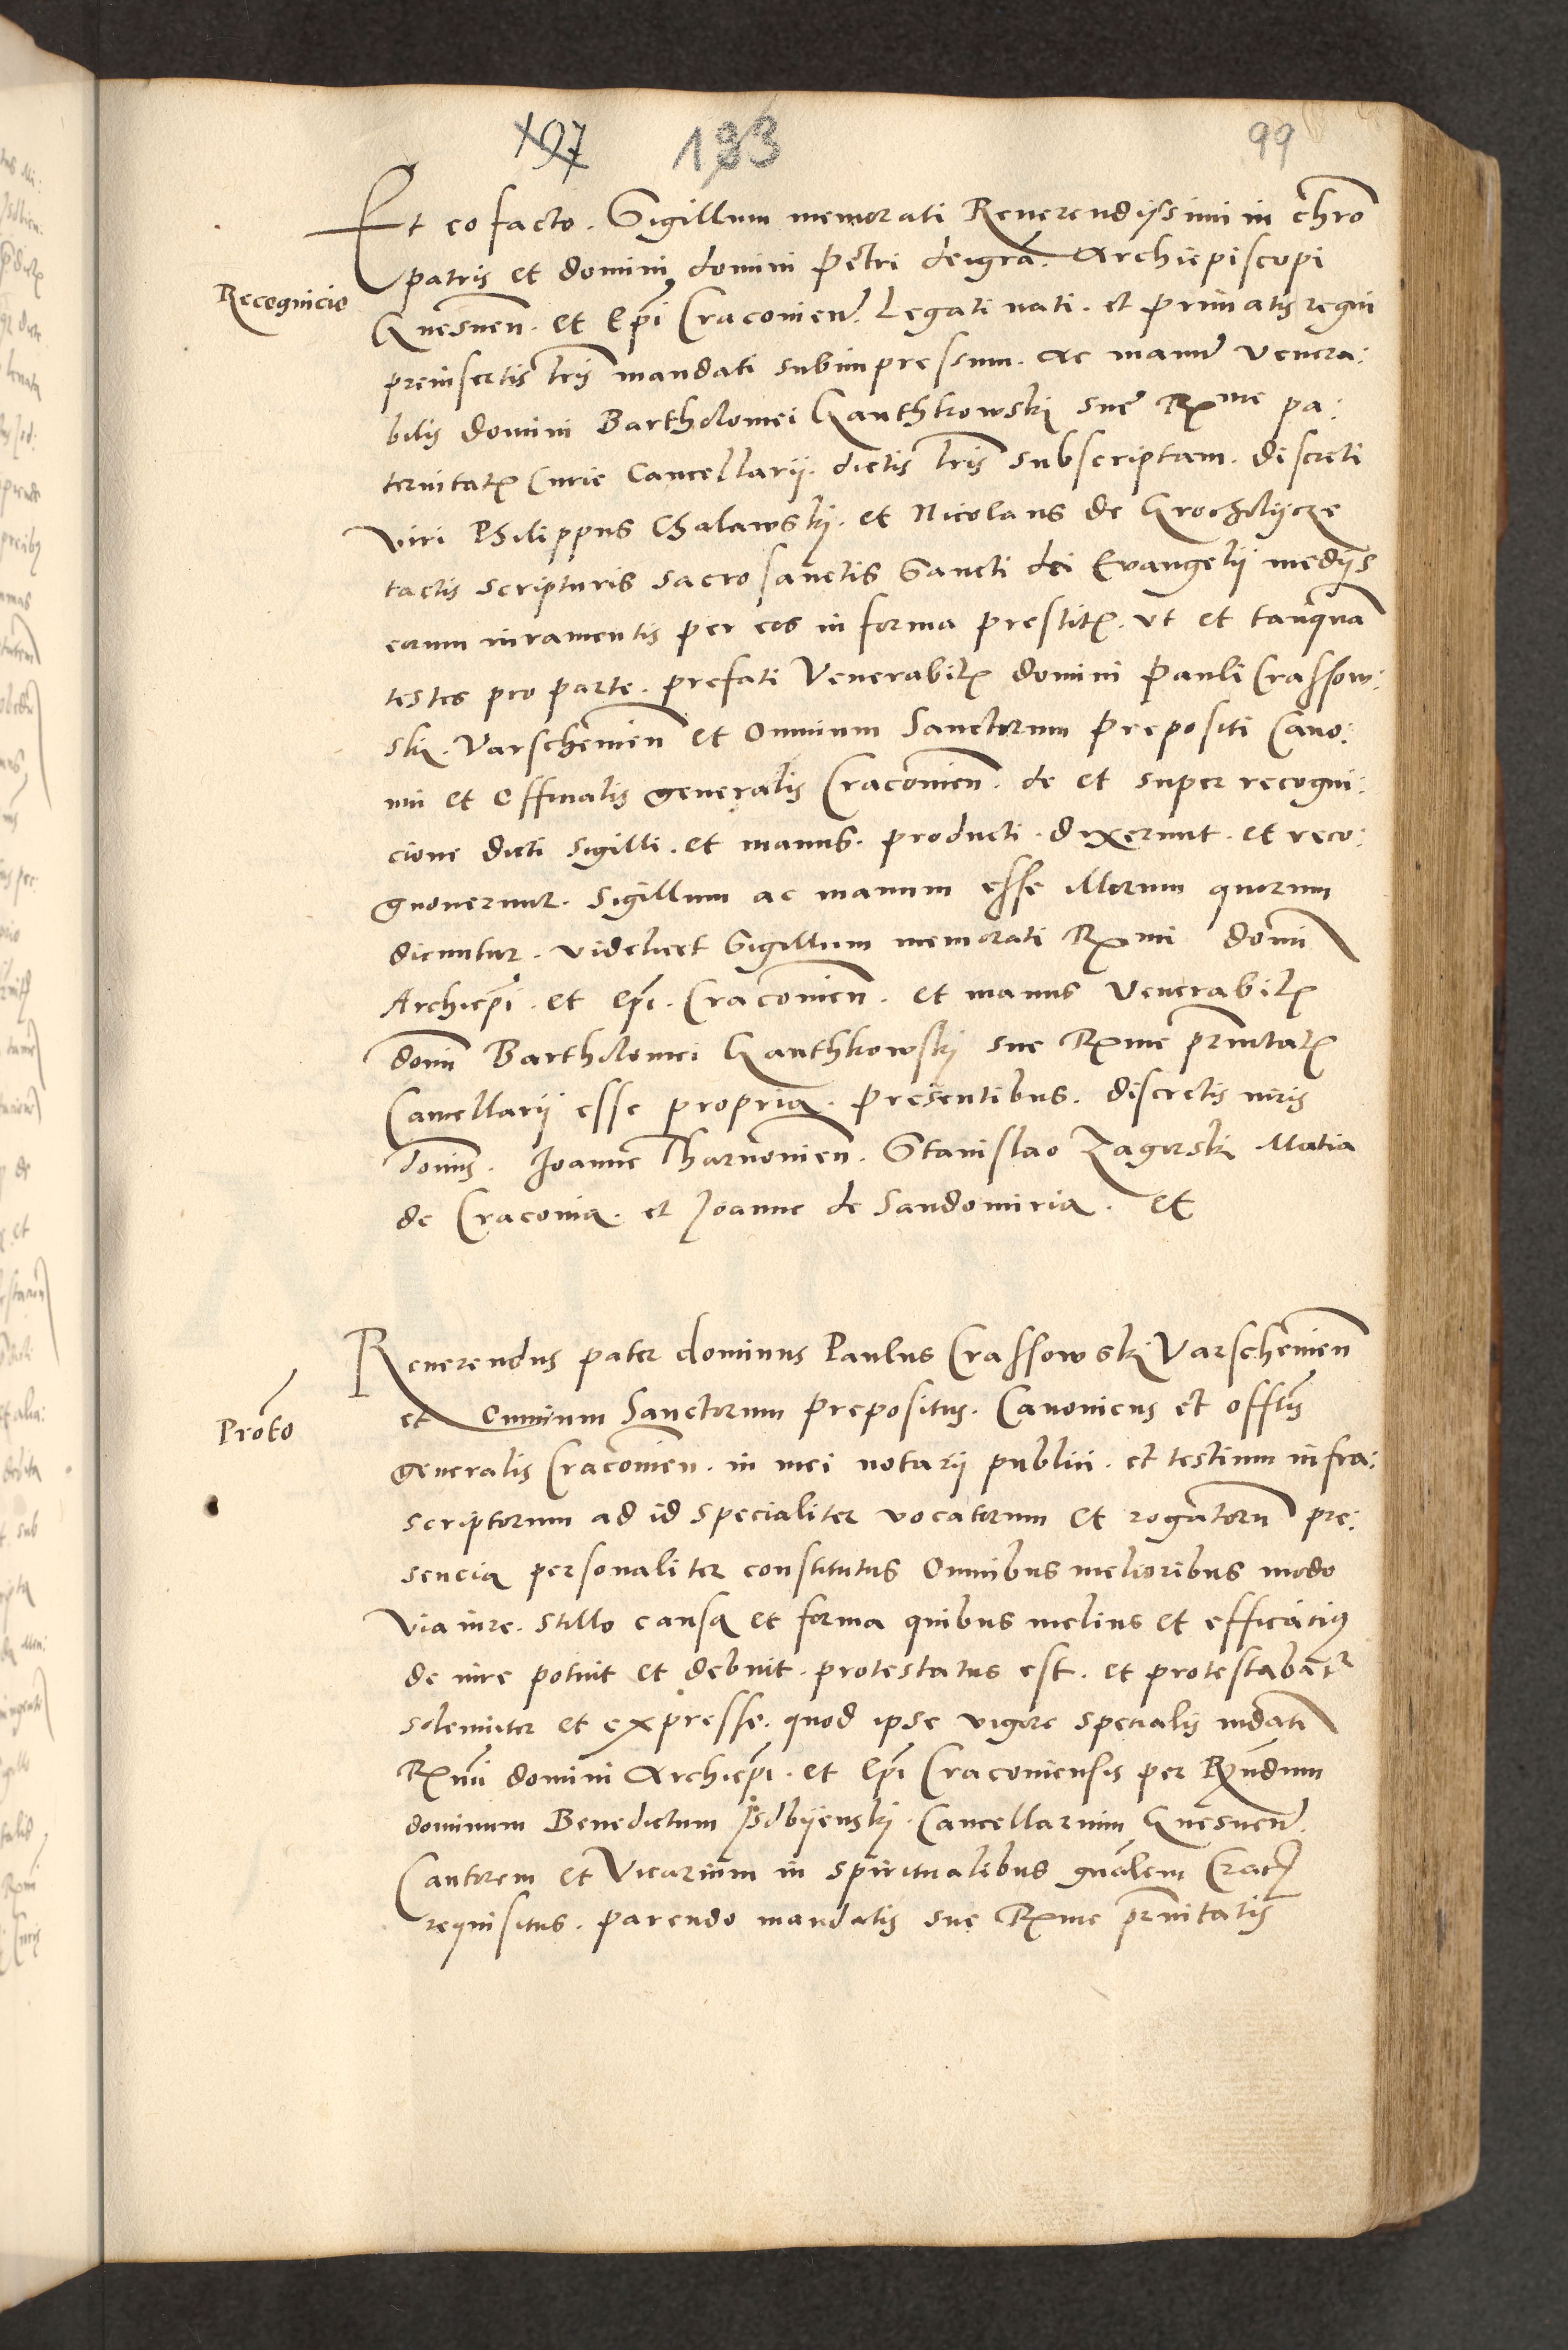 197 183 99
Et eo facto. Sigillum memorati Reverendissimi in chro
patris et domini domini Petri dei gra. Archiepiscopi
Recognicio
Gnesnen. et Epi Cracovien. Legati nati. et primatis regni
preinsertis lris mandati subimpressum. ac manum venera:
bilis domini Bartholomei Ganthkowskj sue Rme pa:
ternitatis Curie Cancellarij. dictis lris subscriptam. discreti
viri Philippus Chalawskj. et Nicolaus de Grocholycze
tactis scripturis sacro sanctis Sancti dei Evangelij medijs
eorum iuramentis per eos in forma prestitis. ut et tanqua
testes pro parte. prefati Venerabilis domini Pauli Crassow:
skj. Varschenien et Omnium Sanctorum prepositi Cano:
nici et Officialis generalis Cracovien. de et super recogni:
cione dicti sigilli. et manus. producti. dixerunt. et reco:
gnoverunt. Sigillum ac manum esse illorum quorum
dicuntur. videlicet Sigillum memorati Rmi domi
Archiepi. et epi. Cracovien. et manus Venerabilis
domi Bartholomei Ganthkowskj sue Rme prnitatis
Cancellarij esse propria. presentibus. discretis viris
domis. Joanne Tharnovien. Stanislao Zagorskj Matia
de Cracovia. et Joanne de Sandomiria. et
Reverendus pater dominus Paulus Crassowskj Varschenien
et Omnium Sanctorum prepositus. Canonicus et offlis
Proto
generalis Cracovien. in mei notarij publici. et testium infra:
scriptorum ad id specialiter vocatorum et rogatoru pre:
sencia personaliter constitutus Omnibus melioribus modo
via iure. stillo causa et forma quibus melius et efficacius
de iure potuit et debuit. protestatus est. et protestabatr
solemniter et expresse. quod ipse vigore specialis mdati
Rmi domini Archiepi. et Epi Cracoviensis per Rndum
dominum Benedictum Isdbijenskj. Cancellarium Gnesnen.
Cantorem et Vicarium in spiritualibus gnalem Crac
requisitus. parendo mandatis sue Rme prnitatis